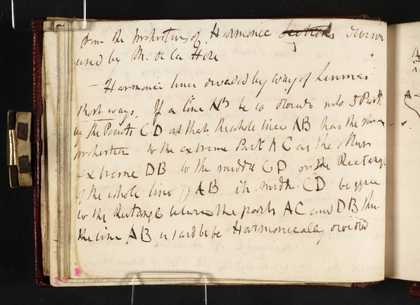 from the properties of Harmonic Sections
used by M. de la Hire
— Harmonic lines divided by way of Lemma
short ways. If a line AB be so divided into 3 Parts
by the Points C D as that the whole line AB has the same
proportion to the extreme Part AC as the other
extreme DB to the middle CD or the Rectangle
of the whole line AB & middle CD be equal
to the Rectangle between the parts AC and DB then
the line AB is said to be Harmonically divided